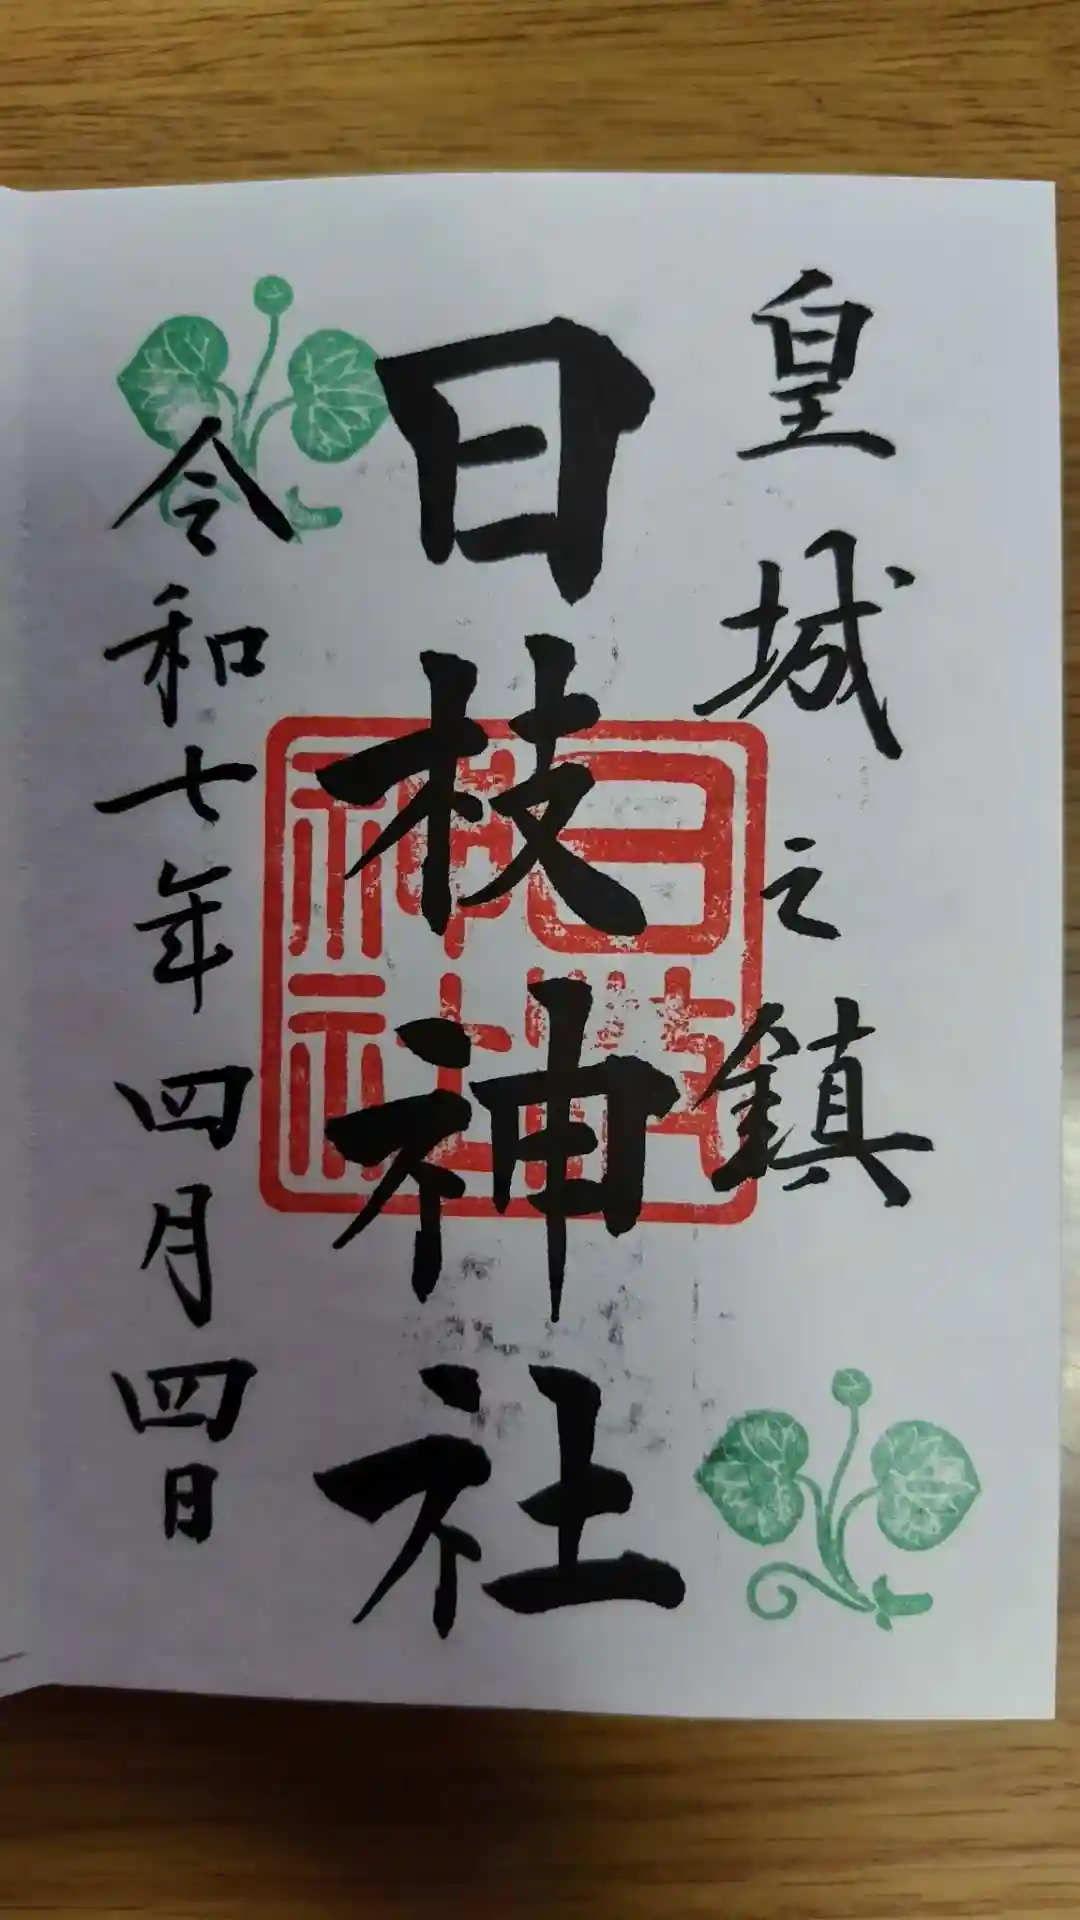 皇城之鎮
日枝神社
日枝神社
令和七年四月四日